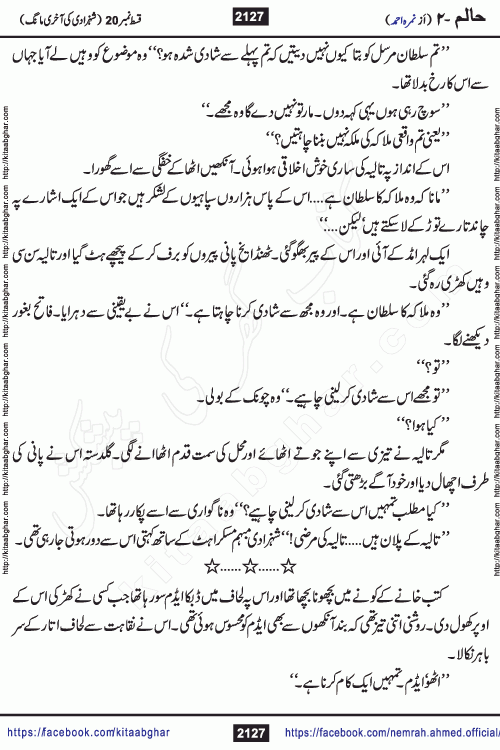 حالم -۲ (از نمرہ احمد) 2127 قسط نمبر 20 (شہزادی کی آخری مانگ)
’’تم سلطان مرسل کو بتا کیوں نہیں دیتیں کہ تم پہلے سے شادی شدہ ہو؟‘‘ وہ موضوع کو وہیں لے آیا جہاں
سے اس کا رخ بدلا تھا۔
’’سوچ رہی ہوں یہی کہہ دوں۔ مار تو نہیں دے گا وہ مجھے۔‘‘
’’یعنی تم واقعی ملاکہ کی ملکہ نہیں بننا چاہتیں؟‘‘
اس کے انداز پہ تالیہ کی ساری خوش اخلاقی ہوا ہوئی۔ آنکھیں اٹھا کے خفگی سے اسے گھورا۔
’’مانا کہ وہ ملاکہ کا سلطان ہے.... اس کے پاس ہزاروں سپاہیوں کے لشکر ہیں جو اس کے ایک اشارے پہ
چاند تارے توڑ کے لا سکتے ہیں‘ لیکن....‘‘
ایک لہر امڈ کے آئی اور اس کے پیر بھگو گئی۔ ٹھنڈا یخ پانی پیروں کو برف کر کے پیچھے ہٹ گیا اور تالیہ سن سی
وہیں کھڑی رہ گئی۔
’’وہ ملاکہ کا سلطان ہے۔ اور وہ مجھ سے شادی کرنا چاہتا ہے۔‘‘ اس نے بے یقینی سے دہرایا۔ فاتح بغور
دیکھنے لگا۔
’’تو؟‘‘
’’تو مجھے اس سے شادی کر لینی چاہیے۔‘‘ وہ چونک کے بولی۔
’’کیا ہوا؟‘‘
مگر تالیہ نے تیزی سے اپنے جوتے اٹھائے اور محل کی سمت قدم اٹھانے لگی۔ گلدستہ اس نے پانی کی
طرف اچھال دیا اور خود آگے بڑھتی گئی۔
’’کیا مطلب تمہیں اس سے شادی کر لینی چاہیے؟‘‘ وہ ناگواری سے اسے پکار رہا تھا۔
’’تالیہ کے پلان ہیں..... تالیہ کی مرضی!‘‘ شہزادی مبہم مسکراہٹ کے ساتھ کہتی اس سے دور ہوتی جا رہی تھی۔
☆......☆......☆
کتب خانے کے کونے میں بچھونا بچھا تھا اور اس پہ لحاف میں دبکا ایڈم سو رہا تھا جب کسی نے کھڑکی اس کے
اوپر کھول دی۔ روشنی اتنی تیز تھی کہ بند آنکھوں سے بھی ایڈم کو محسوس ہوئی تھی۔ اس نے نقاہت سے لحاف اتار کے سر
باہر نکالا۔
’’اٹھو ایڈم۔ تمہیں ایک کام کرنا ہے۔‘‘
https://facebook.com/kitaabghar 2127 https://facebook.com/nemrah.ahmed.official/
http://kitaabghar.com http://kitaabghar.com http://kitaabghar.com http://kitaabghar.com http://kitaabghar.com